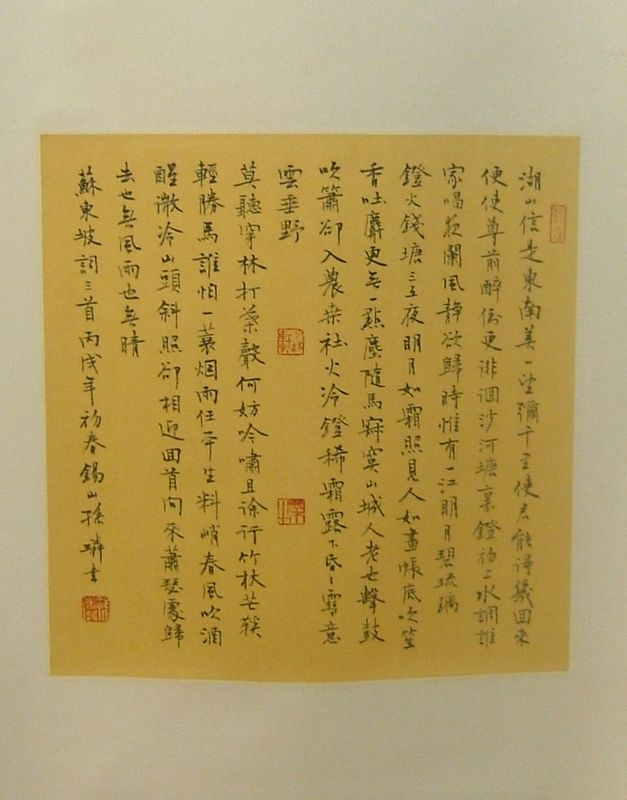 湖山信是東南美一望彌千里使君能得幾回來
便使尊前醉倒更徘迴沙河塘裏鐙初上水調誰
家唱夜闌風靜欲歸時惟有一江明月碧琉璃
鐙火錢塘三五夜明月如霜照見人如畫帳底吹笙
香吐麝更无一點塵隨馬寂寞山城人老也擊鼓
吹簫卻入農桑社火冷鐙稀霜露下昏〻雪意
雲垂野
莫聽穿林打葉聲何妨吟嘯且徐行竹杖芒鞋
輕勝馬誰怕一蓑烟雨任平生料峭春風吹酒
醒微冷山頭斜照卻相迎回首向來蕭瑟處歸
去也无風雨也无晴
蘇東坡詞三首丙戌年初春錫山孫璘書